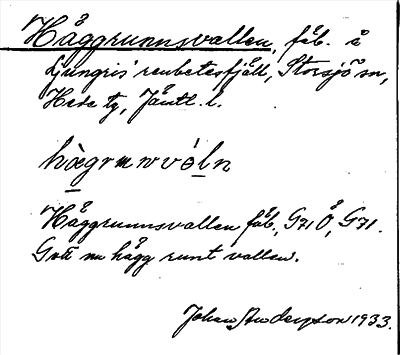 Häggrunnsvallen, fäb. å
Ljungris' renbetesfjäll, Storsjö sn,
Hede tg, Jämtl. l.
hä̀grɯnvéln
Häggrunnsvallen fäb., G71 Ö, G71.
Gott m hägg runt vallen.
Johan Anderson 1933.